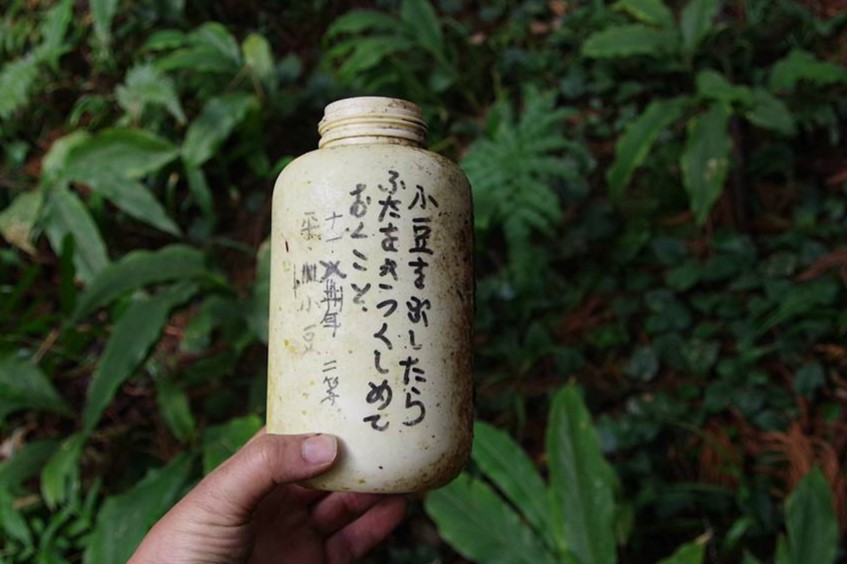 小豆まおしたら
ふたをきつくしめて
おくこと.
十一
小豆